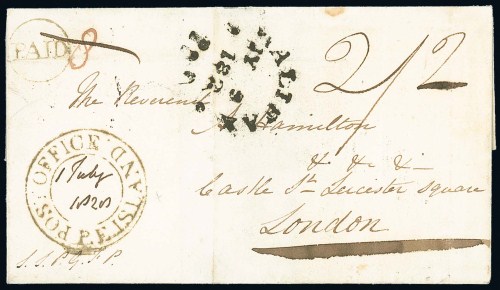 PAID 8
HALIFAX
2/2
The Reverend
A. Hamilton
& & &
Castle St. Leicester Square
London
POST OFFICE P.E. ISLAND
1 July
1828